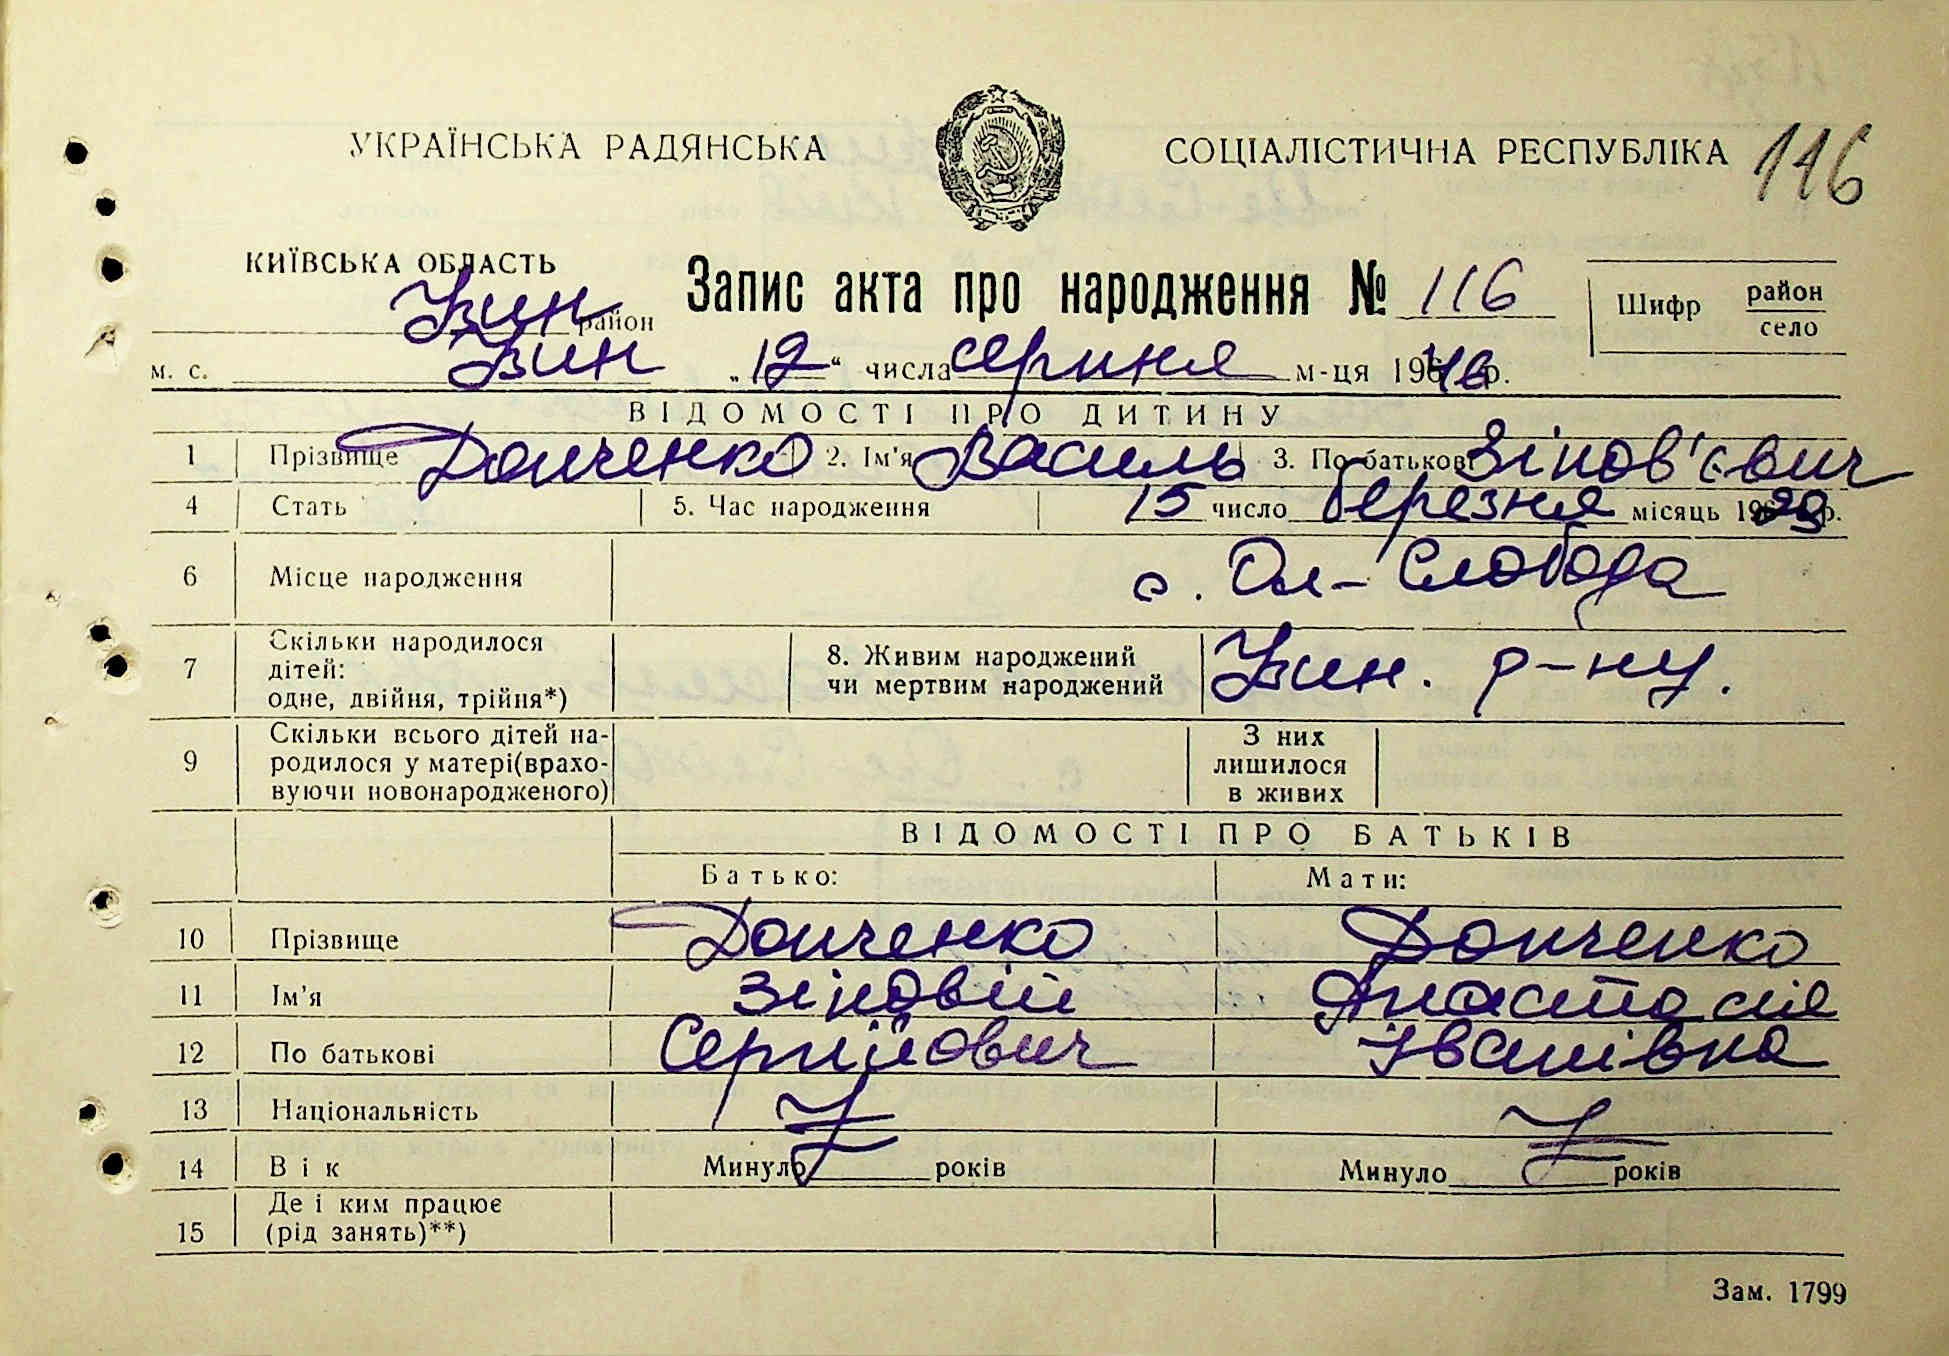 УКРАЇНСЬКА РАДЯНСЬКА СОЦІАЛІСТИЧНА РЕСПУБЛІКА 116
КИЇВСЬКА ОБЛАСТЬ
Запис акта про народження № 116 Шифр район село
Узин район
м. с. Узин „12“ числа серпня м-ця 1946 р.
ВІДОМОСТІ ПРО ДИТИНУ
1 Прізвище Донченко 2. Ім'я Василь 3. По батькові Зінов'євич
4 Стать 5. Час народження 15 число березня місяць 1929 р.
6 Місце народження с. Ол-Слобода
7 Скільки народилося дітей: одне, двійня, трійня*) 8. Живим народжений чи мертвим народжений Узин. р-ну.
9 Скільки всього дітей народилося у матері(враховуючи новонародженого) З них лишилося в живих
ВІДОМОСТІ ПРО БАТЬКІВ
Батько: Мати:
10 Прізвище Донченко Донченко
11 Ім'я Зіновій Анастасія
12 По батькові Сергійович Іванівна
13 Національність
14 Вік Минуло років Минуло років
15 Де і ким працює (рід занять)**)
Зам. 1799